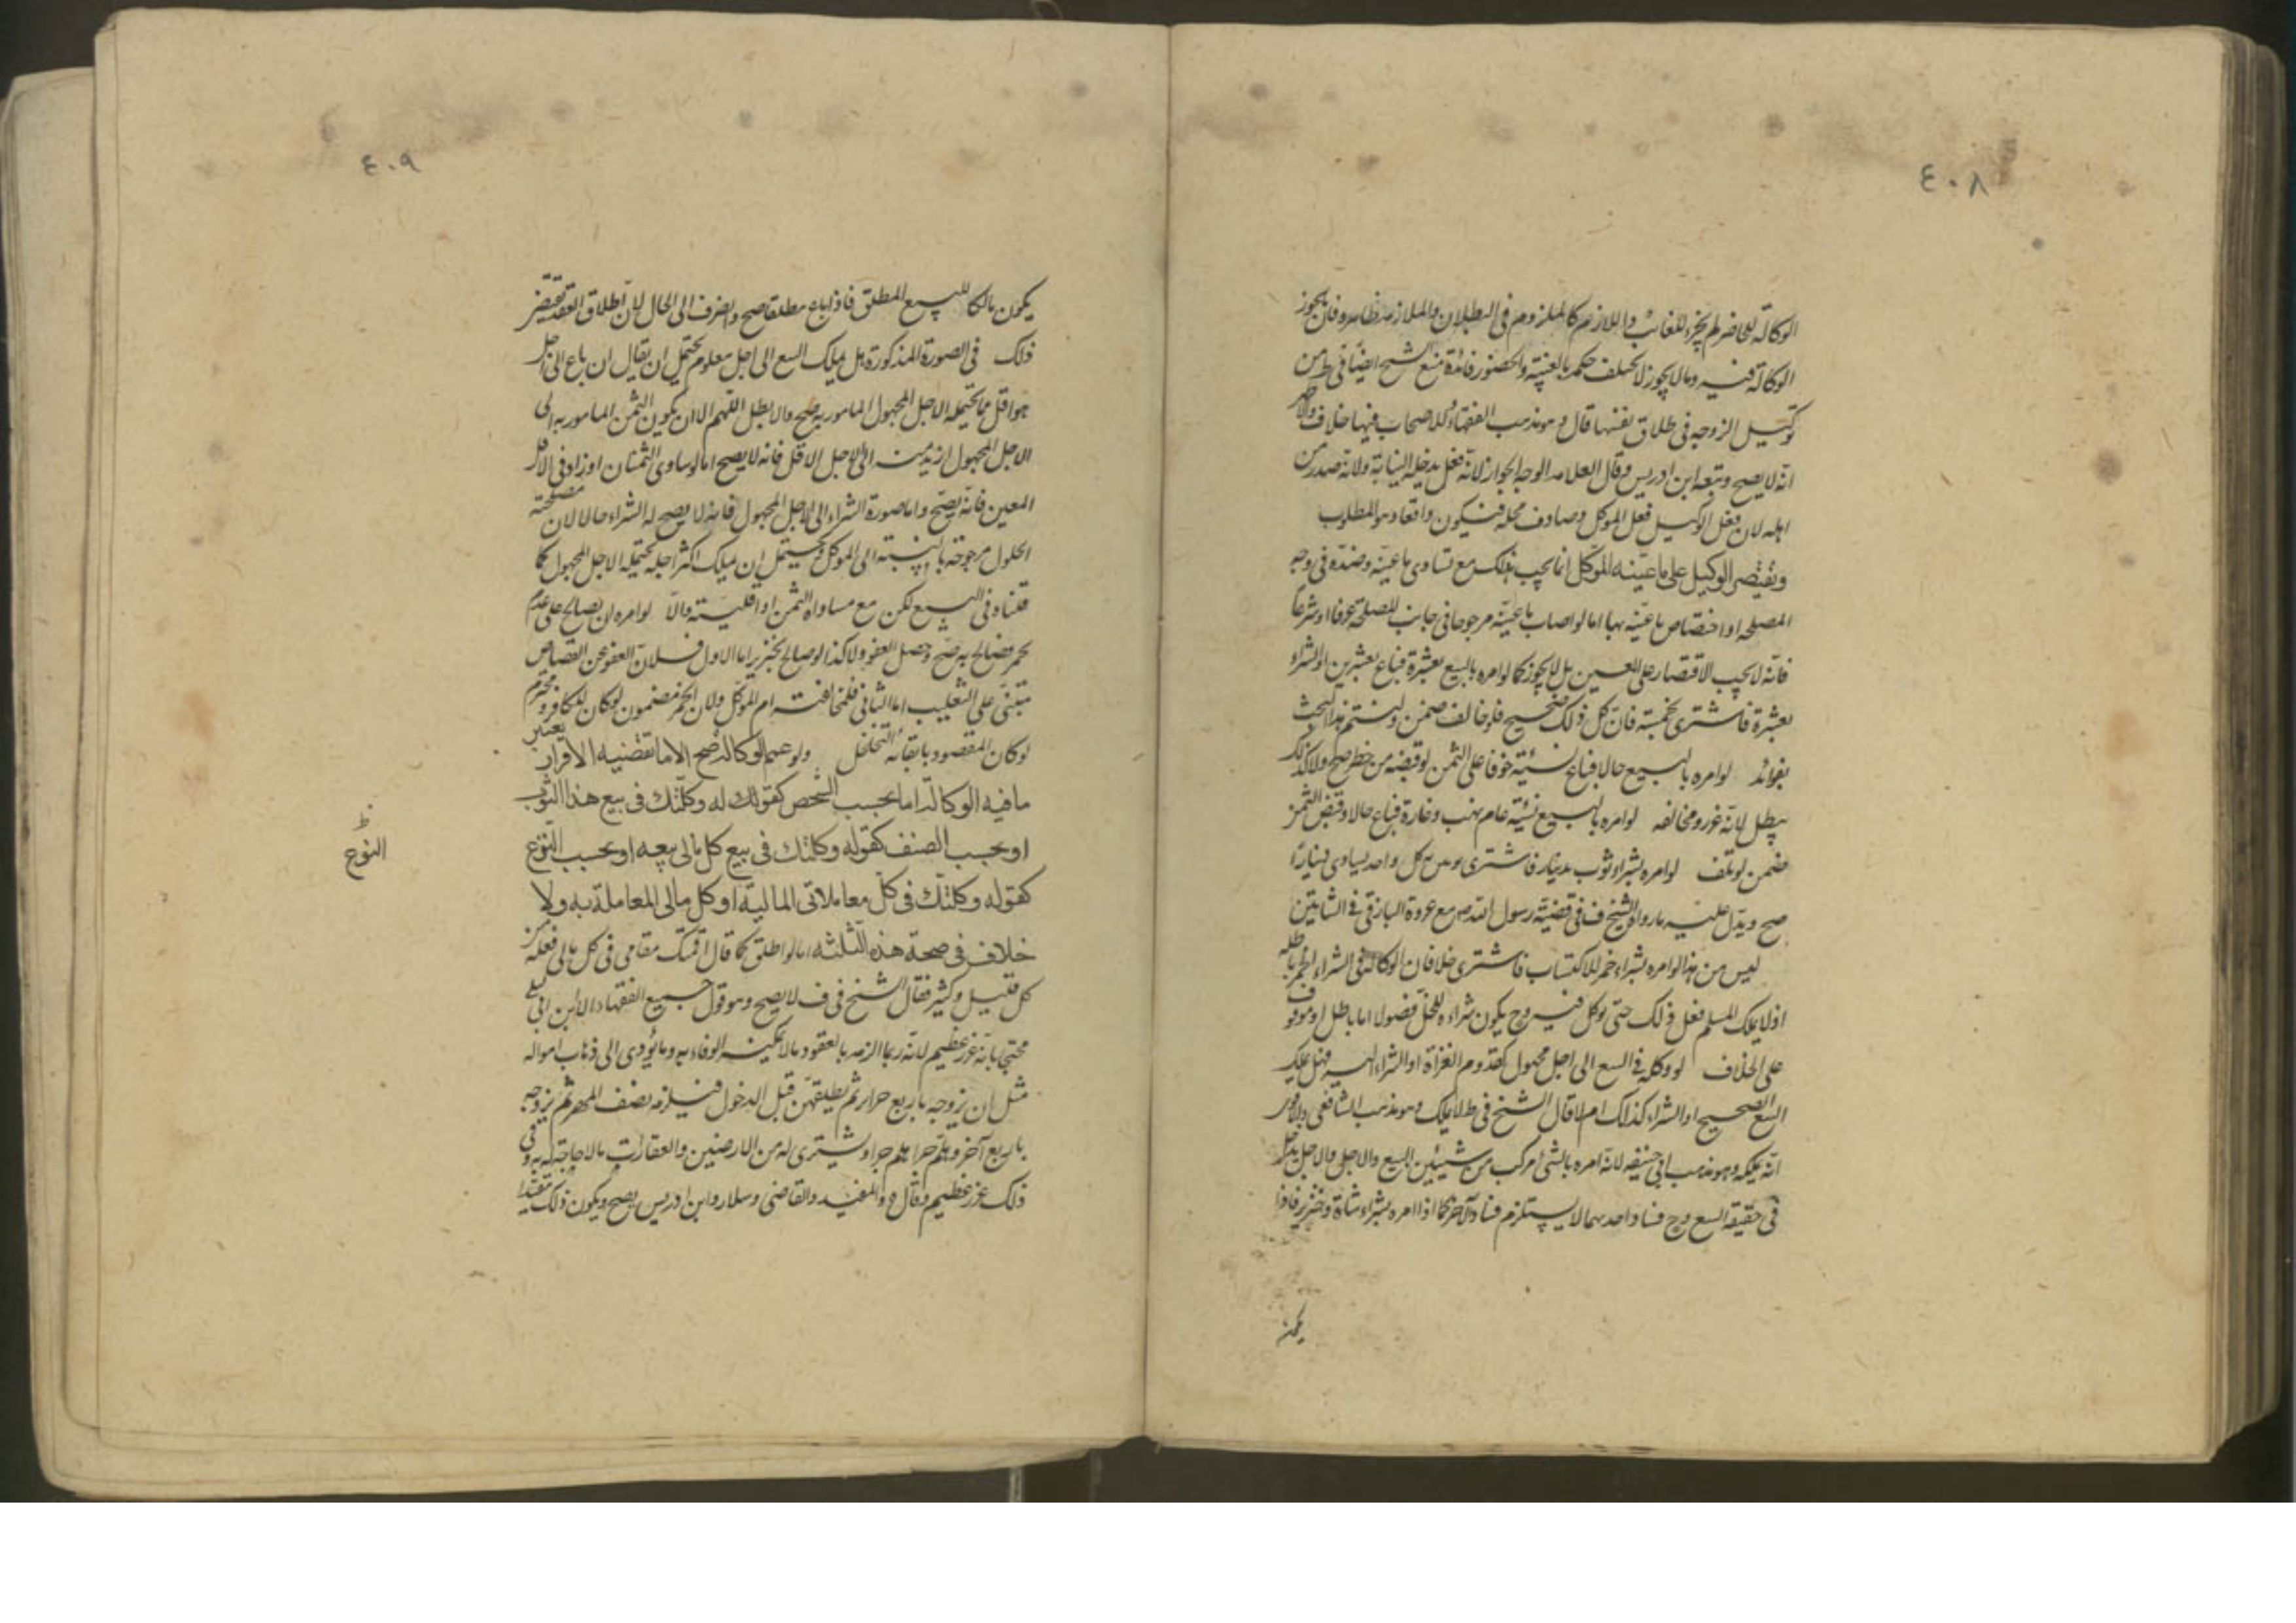 ٤٠٨
الوكالة للحاضر لم يجز للغائب واللازم كالملزوم في البطلان والملازمة ظاهرة فان يجوز
الوكالة فيه وما لا يجوز لا يختلف حكمه بالغيبة والحضور فائدة منع الشيخ ايضا في ط من
توكيل الزوجة في طلاق نفسها قال وهو مذهب الفقهاء وللاصحاب فيها خلاف والاظهر
انه لا يصح وتبعه ابن ادريس وقال العلامه الوجه الجواز لانه فعل يدخله النيابة ولانه صدر من
اهله لان فعل الوكيل فعل الموكل وصادف محله فيكون واقعا وهو المطلوب
ويقتصر الوكيل على ما عينه الموكل انما يجب ذلك مع تساوي ما عينه وضده في وجه
المصلحه او اختصاص ما عينه بها اما لو اصاب ما عينه مرجوحا في جانب المصلحة عرفا او شرعا
فانه لا يجب الاقتصار على المعين بل يجوز كما لو امره بالبيع بعشرة فباع بعشرين او الشراء
بعشرة فاشترى بخمسة فان كل ذلك صحيح فلو خالف ضمن ولنتم هذا البحث
بفوائد لو امره بالبيع حالا فباع نسيئة خوفا على الثمن لو قبضه من خطر صح ولا كذلك
يبطل لانه غرر ومخالفه لو امره بالبيع نسيئة عام نهب وغارة فباع حالا وقبض الثمن
ضمن لو تلف لو امره بشراء ثوب بدينار فاشترى كل واحد يساوي دينارا
صح ويدل عليه ما رواه الشيخ في قضية رسول الله ص مع عروة البارقي في الشاتين
ليس من هذا لو امره بشراء خمر للاكتساب فاشترى خلا فان الوكالة في الشراء الخمر باطله
اذ لا يملك المسلم فعل ذلك حتى يوكل فيه وح يكون شراءه للخل فضولا اما باطل او موقوف
على الخلاف لو وكله في البيع الى اجل مجهول كقدوم الغزاة او الشراء اليه فهل يملك
البيع الصحيح او الشراء كذلك ام لا قال الشيخ في ط لا يملك وهو مذهب الشافعي والاقوى
انه يملكه وهو مذهب ابي حنيفه لانه امره بالشئ مركب من شيئين البيع والاجل والاجل يدخل
في حقيقة البيع وح فساد احدهما لا يستلزم فساد الاخر كما اذا امره بشراء شاة وخنزير فاذا
يكون
٤٠٩
يكون مالكا للبيع المطلق فاذا باع مطلقا صح وانصرف الى الحال لان اطلاق العقد يقتضي
ذلك في الصورة المذكورة هل يملك البيع الى اجل معلوم يحتمل ان يقال ان باع الى اجل
هو اقل مما يحتمله الاجل المجهول المامور به صح والا بطل اللهم الا ان يكون الثمن المامور به الى
الاجل المجهول ازيد منه الى الاجل الاقل فانه لا يصح اما لو ساوى الثمنان او زاد في الاقل
المعين فانه يصح واما صورة الشراء الى الاجل المجهول فانه لا يصح له الشراء حالا لان مصلحته
الحلول مرجوحة بالنسبة الى الموكل ويحتمل ان يملك اكثر اجله يحتمله الاجل المجهول كما
قلناه في البيع لكن مع مساواة الثمن او اقليته والا لو امره ان يصالح على دم
بخمر فصالح به صح وحصل العفو ولا كذا لو صالح بخنزير اما الاول فلان العفو عن القصاص
مبني على التغليب اما الثاني فلمخالفته امر الموكل ولان الخمر مضمون لو كان للكافر ومحترم
لو كان المقصود بابقائه التخلل ولو عمم الوكالة صح الا ما تقتضيه الاقرار يعتبر
ما فيه الوكالة اما بحسب الشخص كقولك له وكلتك في بيع هذا الثوب
او بحسب الصنف كقوله وكلتك في بيع كل مالي بيعه او بحسب النوع
النوع ظ
كقوله وكلتك في كل معاملاتي المالية او كل مالي المعاملة به ولا
خلاف في صحة هذه الثلثه اما لو اطلق كما قال اقمتك مقامي في كل مالي فعله من
كل قليل وكثير فقال الشيخ في ف لا يصح وهو قول جميع الفقهاء الا ابن ابي ليلى
محتجا بانه غرر عظيم لانه ربما الزمه بالعقود ما لا يمكنه الوفاء به وما يؤدي الى ذهاب امواله
مثل ان يزوجه باربع حرائر ثم يطلقهن قبل الدخول فيلزمه نصف المهر ثم يزوجه
باربع آخر وهلم جرا هلم جرا ويشتري له من الارضين والعقارات ما لا حاجة له به وفي
ذلك غرر عظيم وقال والمفيد والقاضي وسلار وابن ادريس يصح ويكون ذلك مقيدا